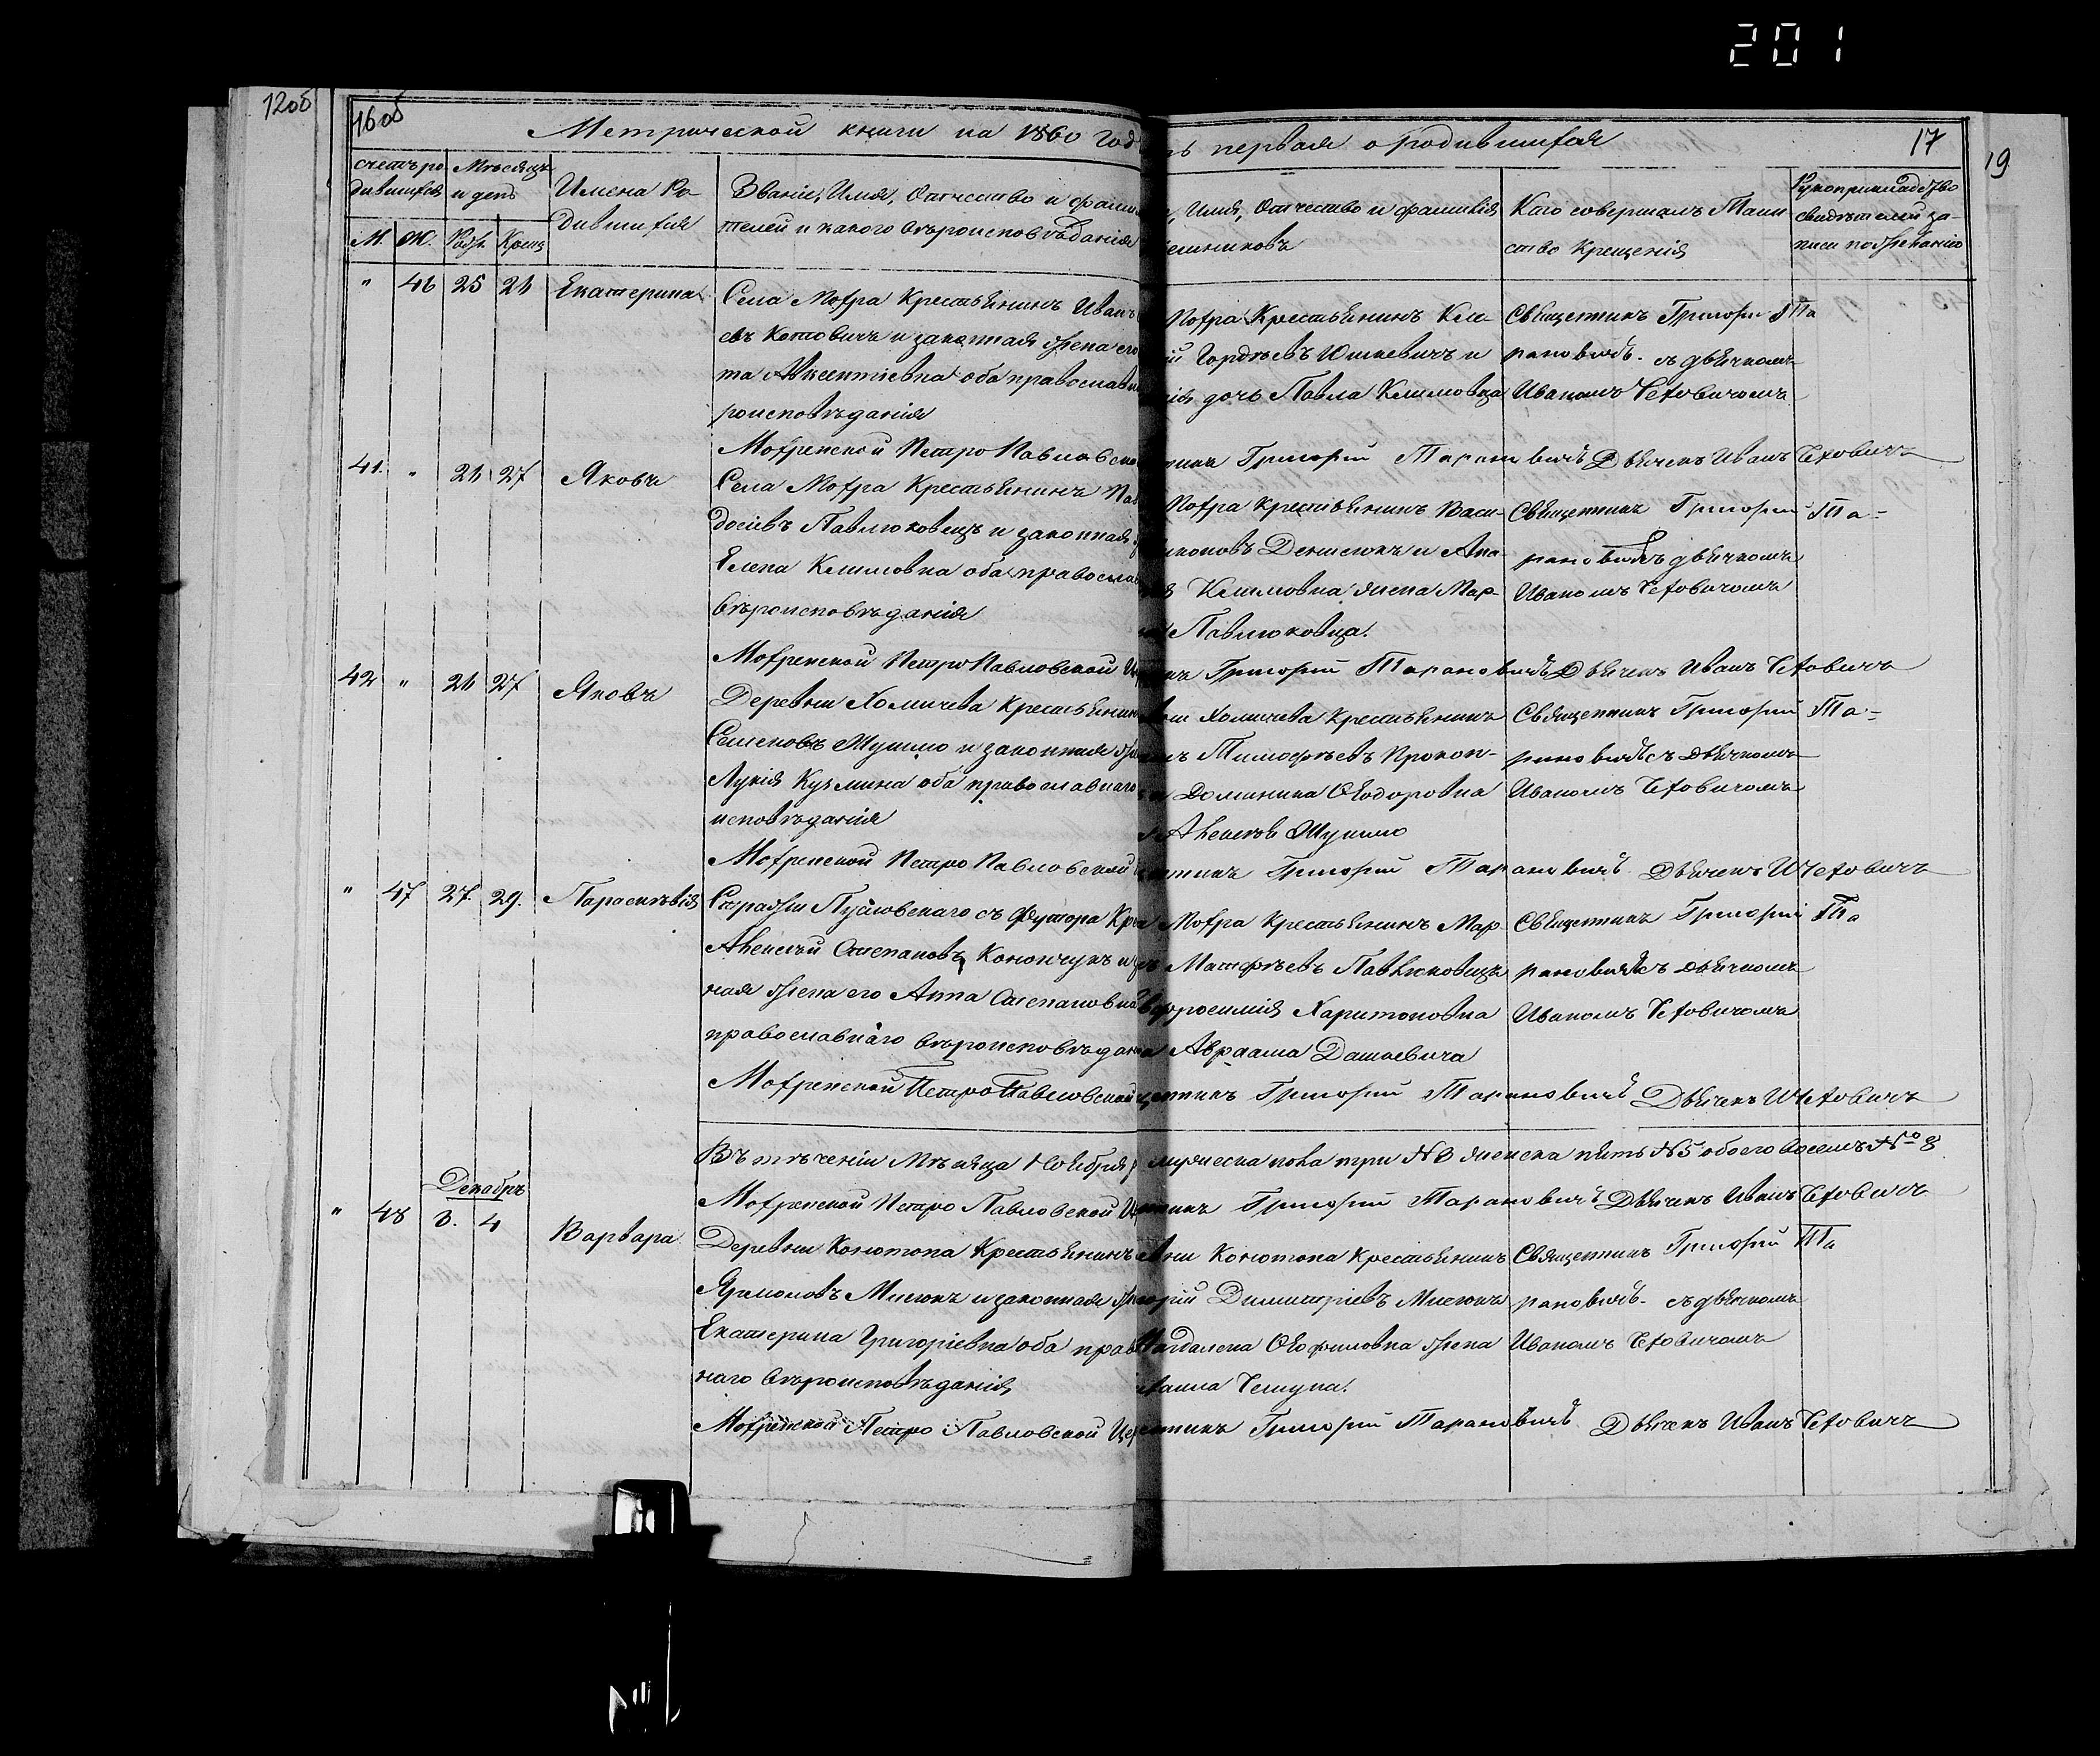 201
12об
16об
Метрической книги на 1860 год
ть первая о родившихся
17
19
счетъ родившихся
Мѣсяцъ и день
Имена Родившихся
Званіе, Имя, Отчество и фами
телей и какого вѣроисповѣданія
Имя, Отчество и фамилія
емниковъ
Кто совершалъ Таинство Крещенія
Рукоприкладство свидѣтелей записи по желанію
М. Ж. Рожд. Крещ.
" 46 25 26 Екатерина
Села Мохра Крестьянинъ Иванъ
евъ Котовичъ и законная жена его
та Авксентіевна оба православн
роисповѣданія
Мохра Крестьянинъ Кли-
ій Гордѣевъ Юшкевичъ и
ія дочь Павла Климовца
Священникъ Григорій Та
рановичъ съ дьячкомъ
Иваномъ Чеховичомъ
Мохренской Петро Павловско
нникъ Григорій Тарановичъ Дьячекъ Иванъ Чеховичъ
41. " 26 27 Яковъ
Села Мохра Крестьянинъ Па
досіевъ Павлюковецъ и законная
Елена Климовна оба православ
вѣроисповѣданія
Мохра крестьянинъ Васи-
Денисюкъ и Ана-
Климовна жена Мар-
Павлюковца.
Священникъ Григорій Та-
рановичъ съ дьячкомъ
Иваномъ Чеховичомъ
Мохренской Петро Павловской Ц
никъ Григорій Тарановичъ Дьячекъ Иванъ Чеховичъ
42 " 26 27 Яковъ
Деревни Хомичева Крестьянин
Семеновъ Шушко и законная же
Лукія Кузмина оба православнаго
исповѣданія
вни Хомичева Крестьянинъ
Тимофѣевъ Прокоп-
Доминика Ѳеодоровна
Алексѣя Шушко
Священникъ Григорій Та-
рановичъ съ дьячкомъ
Иваномъ Чеховичомъ
Мохренской Петро Павловской
нникъ Григорій Тарановичъ Дьячекъ И Чеховичъ
" 47 27. 29. Параскевія
Стражи Пусловскаго съ Футора Кре
Алексѣй Степановъ Конончукъ и за
ная жена его Анна Степановна
православнаго вѣроисповѣдан
Мохра крестьянинъ Мар-
Матфѣевъ Павлюковецъ
Евфросинія Харитоновна
Авраама Дашкевича
Священникъ Григорій Та
рановичъ съ дьячкомъ
Иваномъ Чеховичомъ
Мохренской Петро Павловской
щенникъ Григорій Тарановичъ Дьячекъ И Чеховичъ
Въ теченіи Мѣсяца Ноября
мужеска пола три №3 женска пять №5 обоего восемь №8
Мохренской Петро Павловской Це
нникъ Григорій Тарановичъ Дьячекъ Иванъ Чеховичъ
Декабрь
" 48 3. 4 Варвара
Деревни Конотопа Крестьянинъ
Ярмоловъ Мисюкъ и законная же
Екатерина Григоріевна оба прав
наго вѣроисповѣданія
вни Конотопа Крестьянинъ
горій Димитріевъ Мисюкъ
Магдалена Ѳеофиловна жена
Чешуна.
Священникъ Григорій Та
рановичъ съ дьячкомъ
Иваномъ Чеховичомъ
Мохренской Петро Павловской Цер
щенникъ Григорій Тарановичъ Дьячекъ Иванъ Чеховичъ